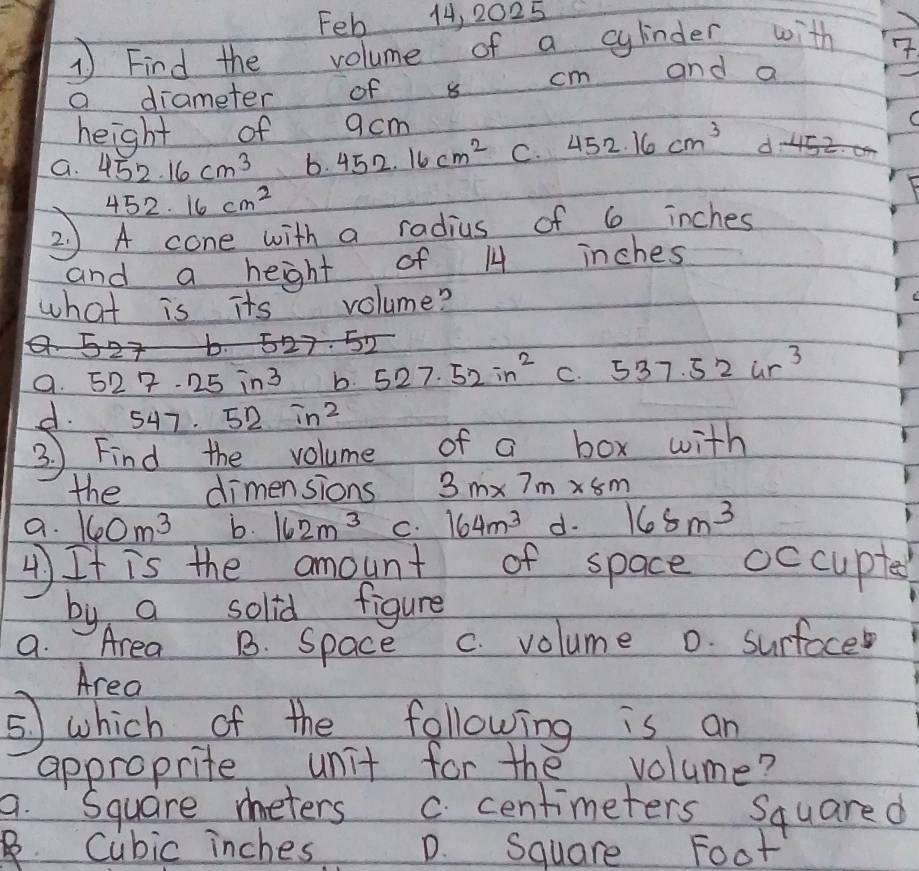 Feb 14, 2025
1) Find the volume of a cylinder with
a diameter of 8 cm and a
height of 9cm
a. 452.16 cm³ b. 452.16 cm² c. 452.16 cm³ d. 452. cm
452.16 cm²
2.) A cone with a radius of 6 inches
and a height of 14 inches
what is its volume?
a. 527 b. 527.52
a. 527.25 in³ b. 527.52 in² c. 537.52 in³
d. 547.52 in²
3.) Find the volume of a box with
the dimensions 3mx7m x8m
a. 160m³ b. 162m³ c. 164m³ d. 168m³
4.) It is the amount of space occupted
by a solid figure
a. Area B. Space c. volume D. surface
Area
5.) which of the following is an
approprite unit for the volume?
a. Square meters c. centimeters squared
B. Cubic inches D. Square Foot
7